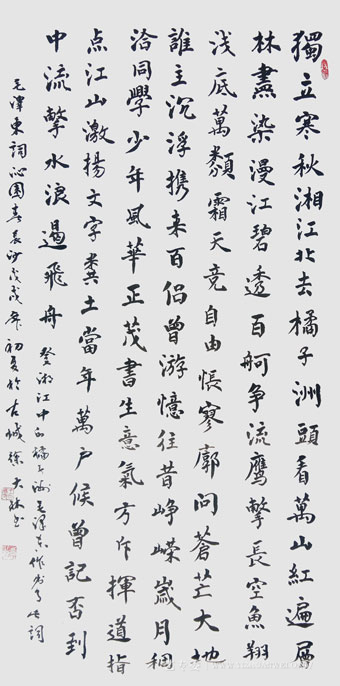 獨立寒秋湘江北去橘子洲頭看萬山紅遍層
林盡染漫江碧透百舸争流鹰擊長空魚翔
浅底萬類霜天竞自由悵寥廓問蒼茫大地
誰主沉浮携来百侣曾游憶往昔崢嶸歲月稠
洽同學少年風華正茂書生意氣方斥揮遒指
点江山激揚文字粪土當年萬户候曾記否到
中流擊水浪遏飛舟 登湘江中 橘子洲毛澤東作 此詞
毛澤東詞沁園春長沙戊戌年初夏於古城徐大